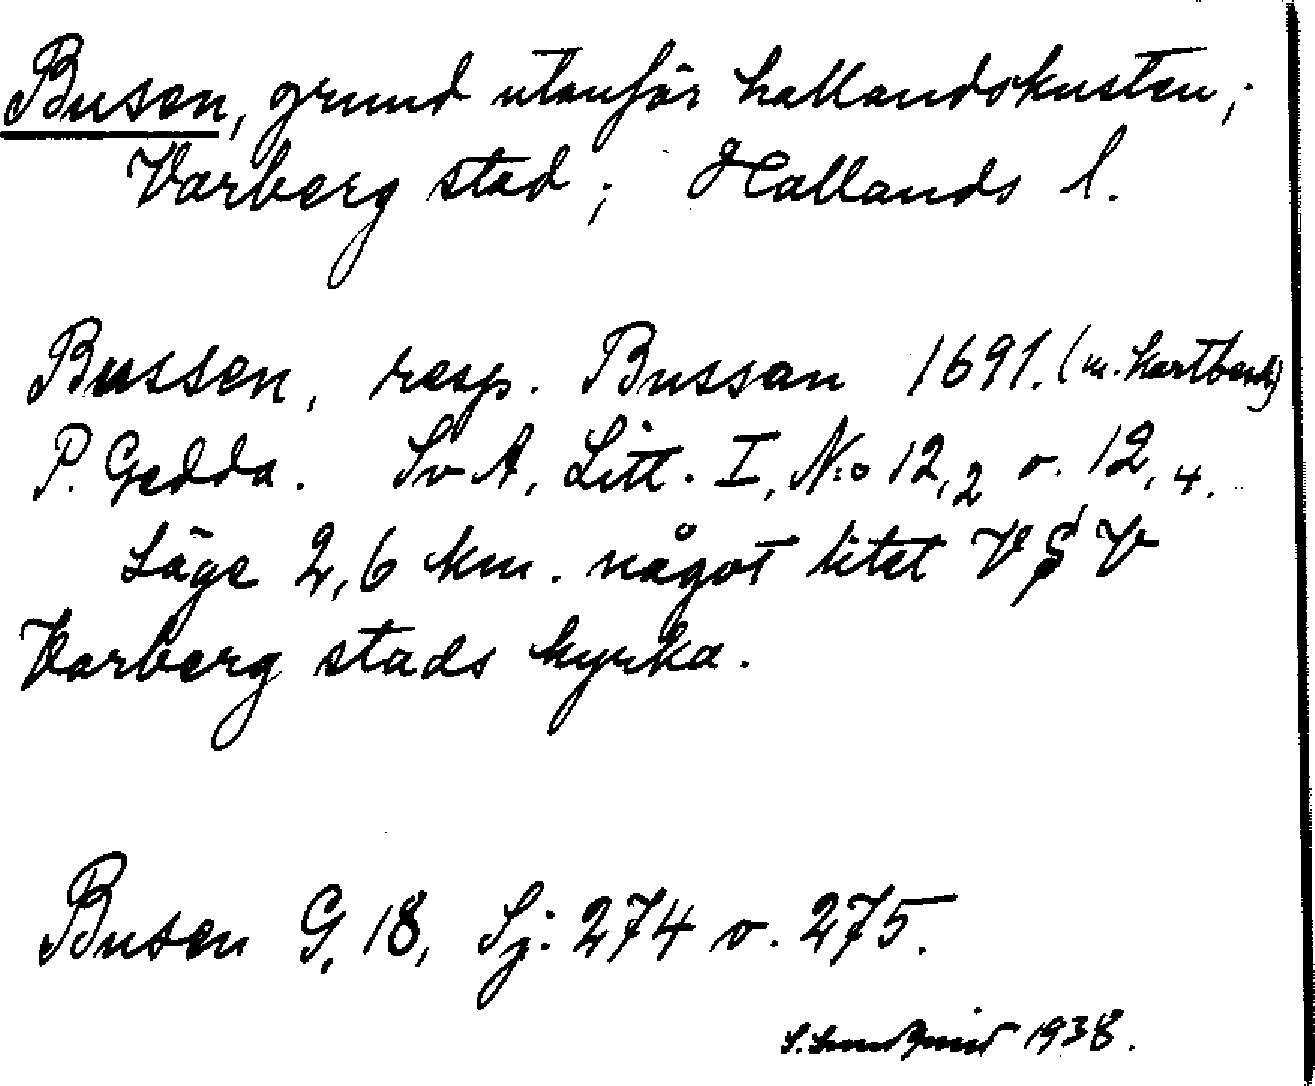 Busen, grund utanför hallandskusten;
Varberg stad; Hallands l.
Bussen, resp. Bussan 1691. (m. kartbeskr)
P. Gedda. Sv A, Litt. I, N:o 12,2 o. 12,4.
Läge 2,6 km. något litet V S V
Varberg stads kyrka.
Busen G, 18, Sj: 274 o. 275.
S. Lundquist 1938.